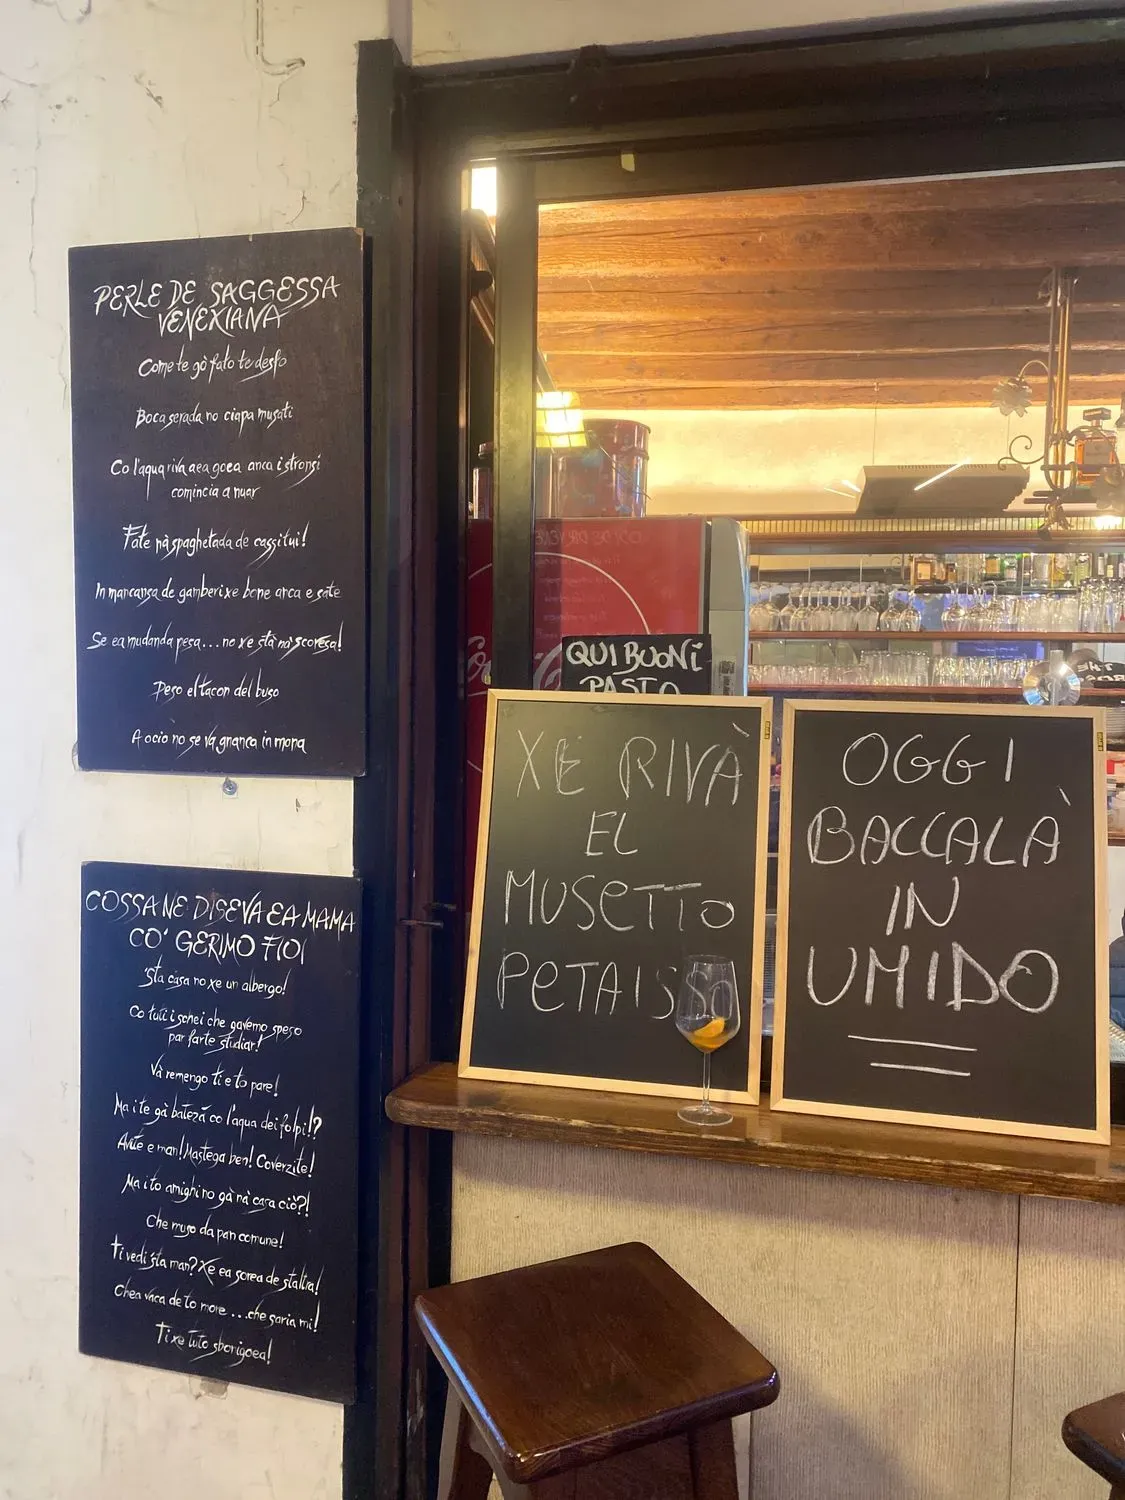 PERLE DE SAGGESSA
VENEXIANA
Come te gò fato te desfo
Boca serada no ciapa musati
Co l'aqua riva aea goea anca i stronsi
comincia a nuar
Fate nà spaghetada de cassi tui!
In mancansa de gamberi xe bone anca e sate
Se ea mudanda pesa... no xe stà nà scoresa!
Peso el tacon del buso
A ocio no se va gnanca in mona
COSSA NE DISEVA EA MAMA
CO' GERIMO FIOI
'Sta casa no xe un albergo!
Co tuti i schei che gavemo speso
par farte studiar!
Và remengo ti e to pare!
Ma i te gà batezà co l'aqua dei folpi!?
Avite e man! Mastega ben! Coverzite!
Ma i to amighi no gà nà casa ciò?!
Che muso da pan comune!
Ti vedi sta man? Xe ea sorea de staltra!
Chea vaca de to mare ...che saria mi!
Ti xe tuto sborigoea!
QUI BUONI
PASTO
XE RIVÀ
EL
MUSETTO
PETAISSO
OGGI
BACCALÀ
IN
UMIDO